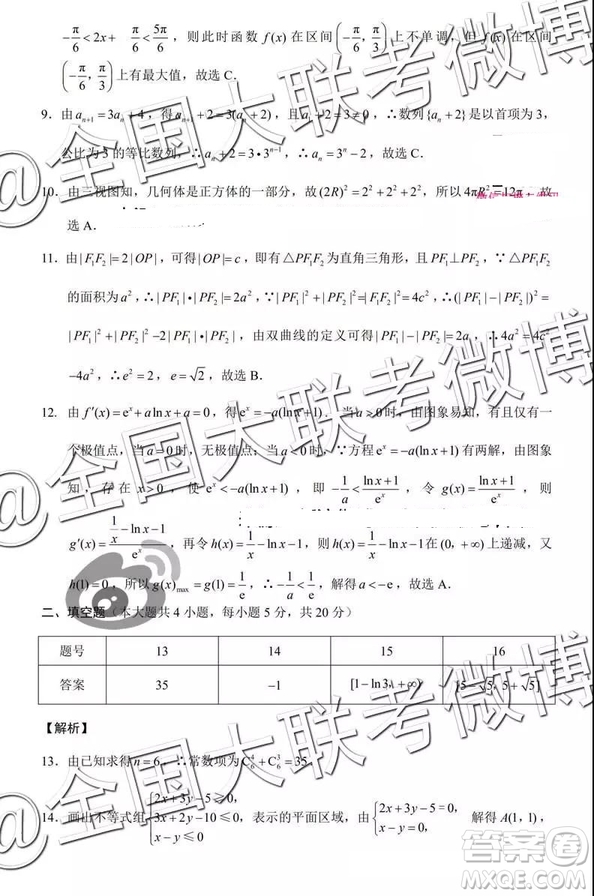 -π/6<2x+π/6≤5π/6，则此时函数 f(x) 在区间 (-π/6, π/3) 上不单调，但 f(x) 在区间
(-π/6, π/3) 上有最大值，故选 C．
9．由 aₙ₊₁=3aₙ+4，得 aₙ₊₁+2=3(aₙ+2)，且 a₁+2=3≠0，∴数列{aₙ+2}是以首项为 3，
公比为 3 的等比数列，∴aₙ+2=3•3ⁿ⁻¹，∴aₙ=3ⁿ-2，故选 C．
10．由三视图知，几何体是正方体的一部分，故 (2R)²=2²+2²+2²，所以 4πR²=12π，故
选 A．
11．由|F₁F₂|=2|OP|，可得|OP|=c，即有△PF₁F₂为直角三角形，且 PF₁⊥PF₂，∵△PF₁F₂
的面积为 a²，∴|PF₁|•|PF₂|=2a²，∵|PF₁|²+|PF₂|²=|F₁F₂|²=4c²，∴(|PF₁|-|PF₂|)²=
|PF₁|²+|PF₂|²-2|PF₁|•|PF₂|，由双曲线的定义可得|PF₁|-|PF₂|=2a，∴4a²=4c²
-4a²，∴e²=2，e=√2，故选 B．
12．由 f′(x)=eˣ+a ln x+a=0，得 eˣ=-a(ln x+1)．当 a>0 时，由图象易知，有且只有一
个极值点，当 a=0 时，无极值点；当 a<0 时，∵方程 eˣ=-a(ln x+1) 有两解，由图象
知，存在 x>0，使 eˣ<-a(ln x+1)，即 -1/a<(ln x+1)/eˣ，令 g(x)=(ln x+1)/eˣ，则
g′(x)=(1/x-ln x-1)/eˣ，再令 h(x)=1/x-ln x-1，则 h(x)=1/x-ln x-1 在 (0, +∞) 上递减，又
h(1)=0，所以 g(x)max=g(1)=1/e，∴-1/a<1/e，解得 a<-e，故选 A．
二、填空题（本大题共 4 小题，每小题 5 分，共 20 分）
题号 13 14 15 16
答案 35 -1 [1-ln3, +∞) [5-√5, 5+√5]
【解析】
13．由已知求得 n=6，∴常数项为 C₆⁴+C₆³=35．
14．画出不等式组{2x+3y-5≥0，3x+2y-10≤0，x-y≤0，表示的平面区域，由{2x+3y-5=0，x-y=0，解得 A(1, 1)，
@全国大联考微博
@全国大联考微博
@全国大联考微博
@全国大联考微博
答案卷